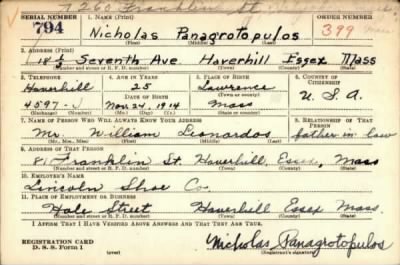 7260 Franklin St
SERIAL NUMBER 1. NAME (Print) ORDER NUMBER
794 Nicholas Panagrotopulos 399
(First) (Middle) (Last)
2. ADDRESS (Print)
18½ Seventh Ave Haverhill Essex Mass
(Number and street or R. F. D. number) (Town) (County) (State)
3. TELEPHONE 4. AGE IN YEARS 5. PLACE OF BIRTH 6. COUNTRY OF CITIZENSHIP
Haverhill 25 Lawrence
DATE OF BIRTH
4597-J Nov 24, 1914 Mass U.S.A.
(Exchange) (Number) (Mo.) (Day) (Yr.) (State or country)
7. NAME OF PERSON WHO WILL ALWAYS KNOW YOUR ADDRESS 8. RELATIONSHIP OF THAT PERSON
Mr. William Leonardos father in law
(Mr., Mrs., Miss) (First) (Middle) (Last)
9. ADDRESS OF THAT PERSON
81 Franklin St. Haverhill, Essex, Mass
(Number and street or R. F. D. number) (Town) (County) (State)
10. EMPLOYER'S NAME
Lincoln Shoe Co.
11. PLACE OF EMPLOYMENT OR BUSINESS
Hale Street Haverhill Essex Mass.
(Number and street or R. F. D. number) (Town) (County) (State)
I AFFIRM THAT I HAVE VERIFIED ABOVE ANSWERS AND THAT THEY ARE TRUE.
REGISTRATION CARD
D. S. S. Form 1 (over) Nicholas Panagrotopulos
(Registrant's signature)